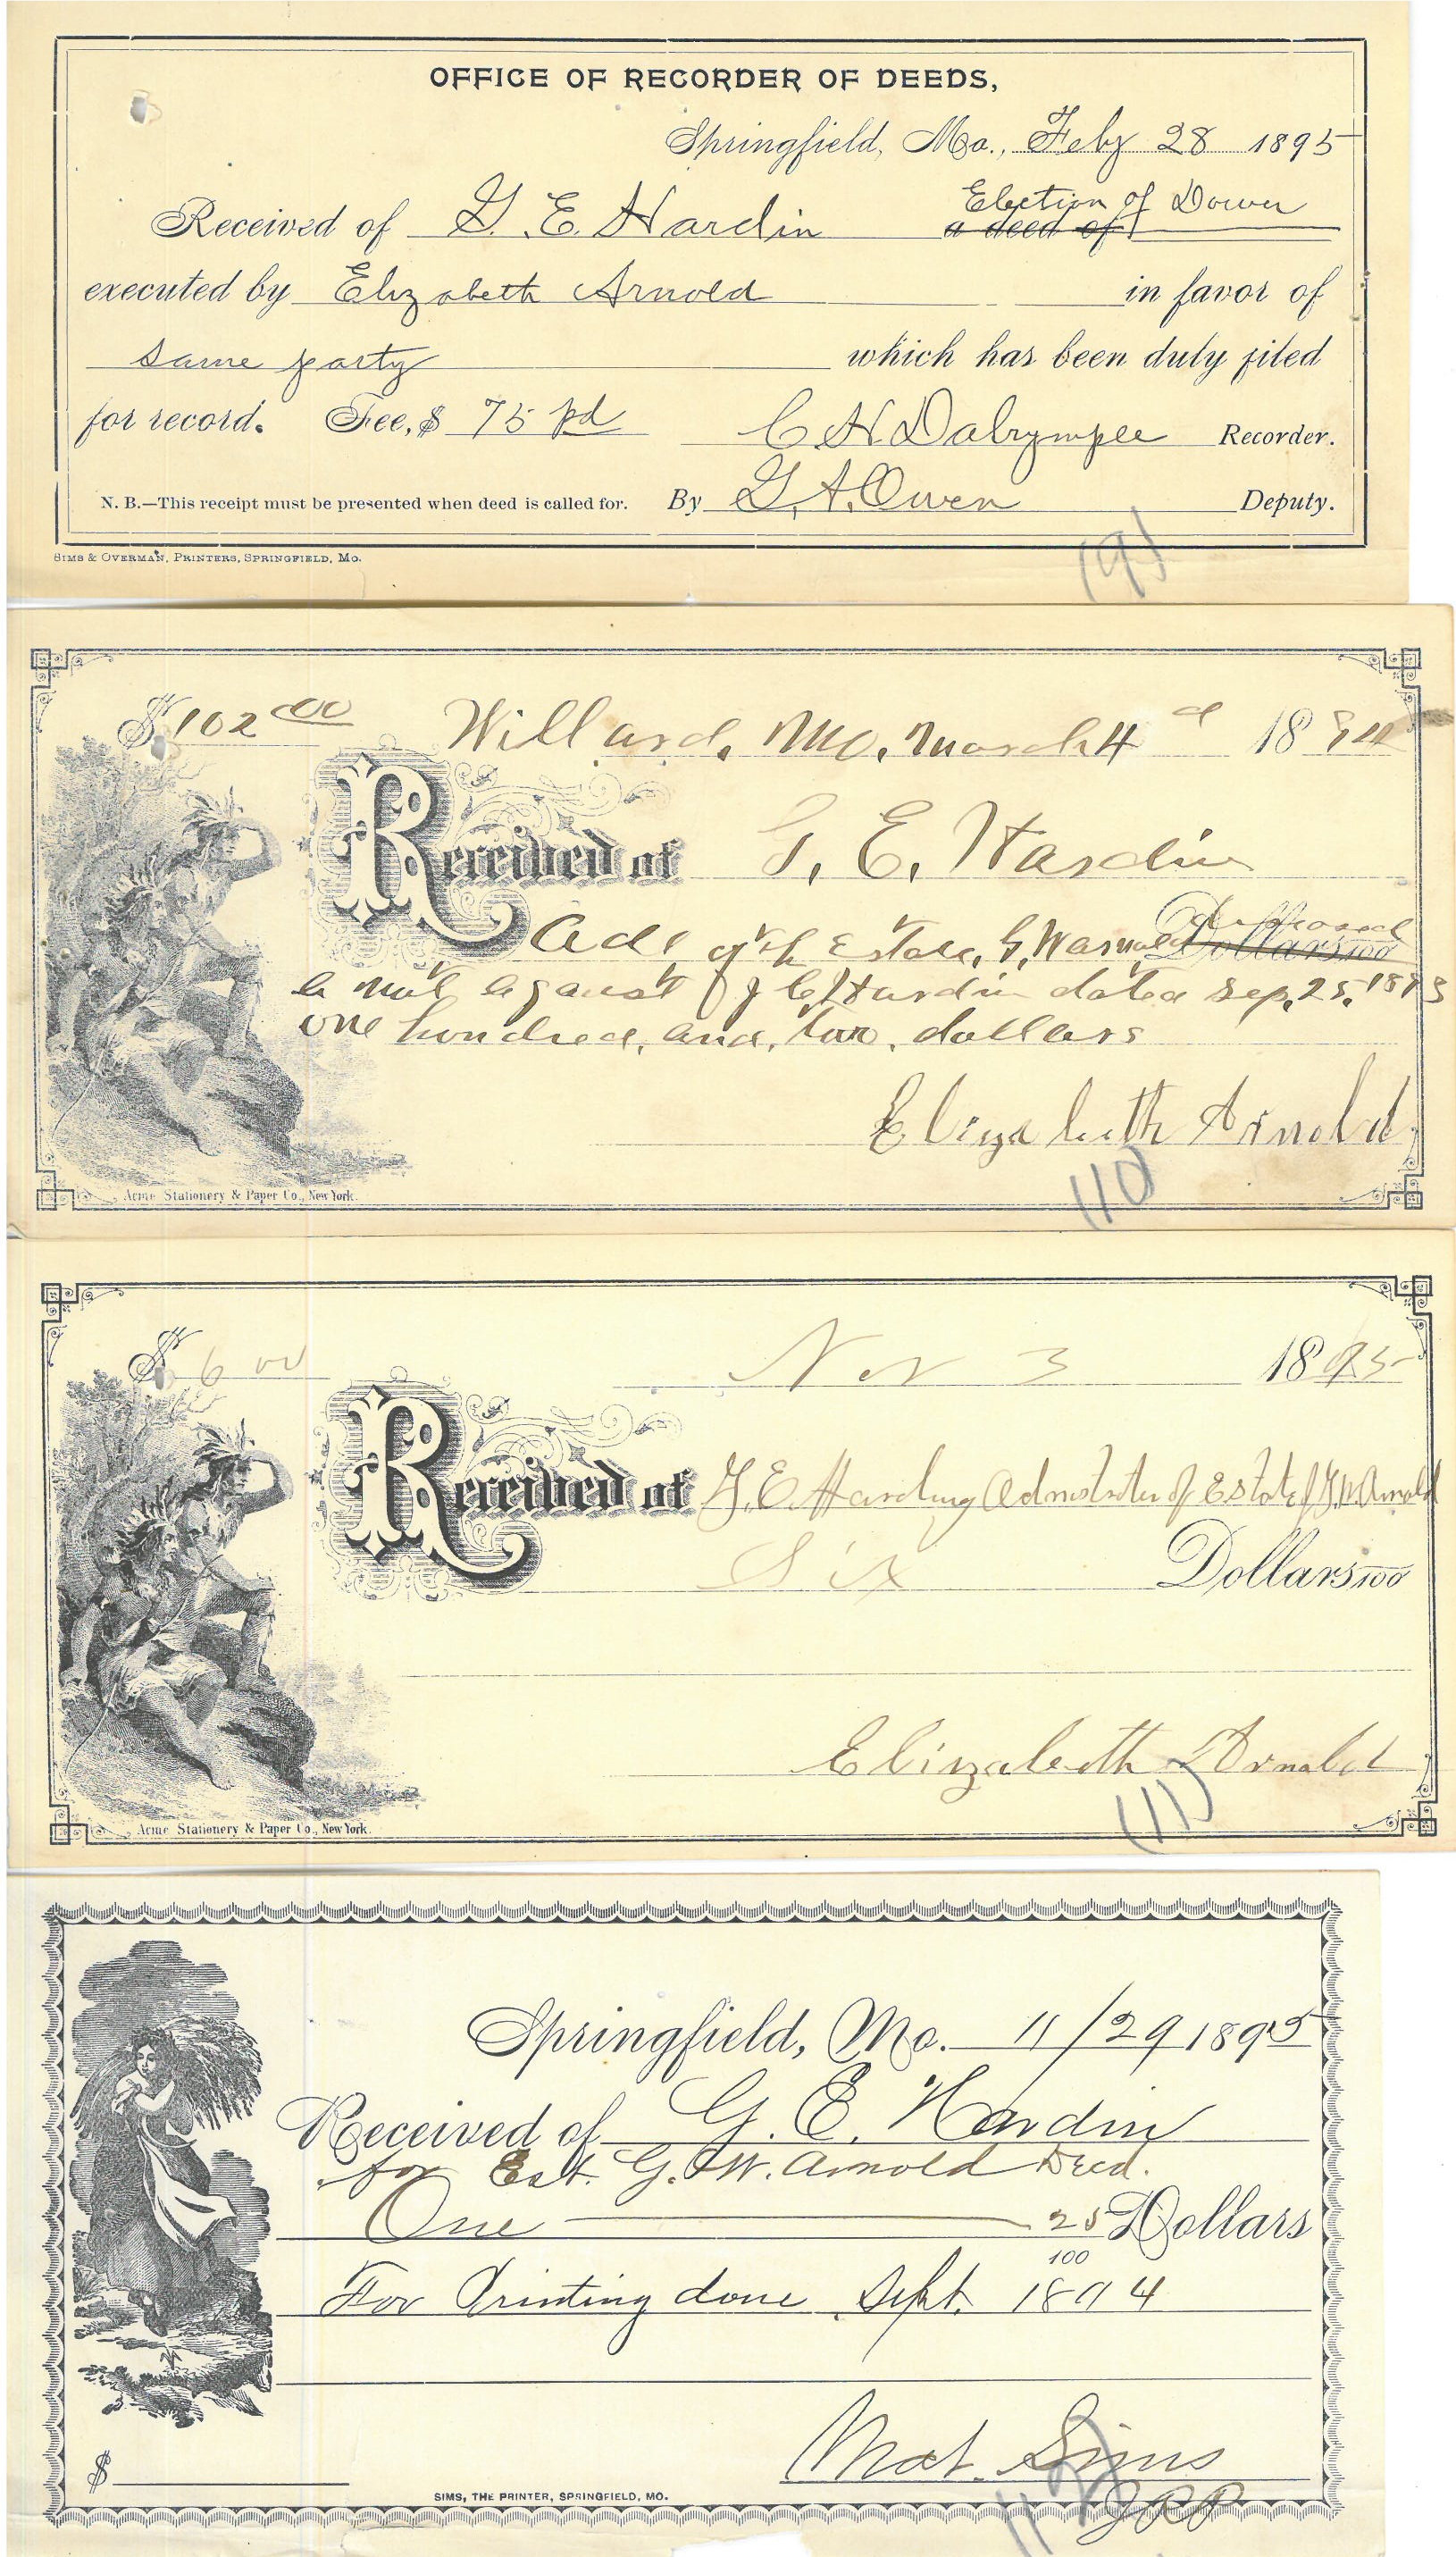 OFFICE OF RECORDER OF DEEDS,
Springfield, Mo., Feby 28 1895
Election of Dower
Received of G. E. Hardin a deed of
executed by Elizabeth Arnold in favor of
same party which has been duly filed
for record. Fee, $ 75 pd C H Dalrymple Recorder.
N. B.—This receipt must be presented when deed is called for. By G. A. Owen Deputy.
SIMS & OVERMAN, PRINTERS, SPRINGFIELD, MO.
(9)
$ 102 00 Willard, Mo. March 4 18
Received of G. E. Hardin
Deceased
Estate, G. W Arnold Dollars 100
a not against J C Hardin dated Sep, 25, 1893
one hundred, and, two, dollars
Elizabeth Arnold
Acme Stationery & Paper Co., New York.
110
$ 6 00 Nov 3 1895
Received of G. E. Harding Admstrater of Estate of G. W Arnold
Six Dollars 100
Elizabeth Arnold
Acme Stationery & Paper Co., New York.
(11)
Springfield, Mo. 11/29 1895
Received of G. E. Hardin
for Est. G. W. Arnold Decd.
One 25 Dollars
100
For Printing done Sept. 1894
Mat. Sims
$
SIMS, THE PRINTER, SPRINGFIELD, MO.
JRP